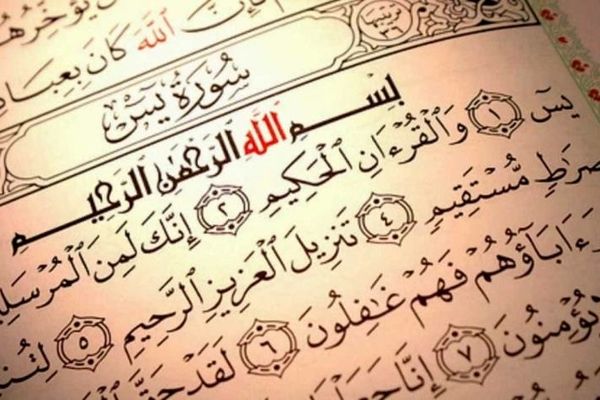 فَإِنَّ ٱللَّهَ كَانَ بِعِبَا
سُورَةُ يسٓ
ترتيبها ٣٦
بِسْمِ ٱللَّهِ ٱلرَّحْمَٰنِ ٱلرَّحِيمِ
يسٓ ١ وَٱلْقُرْءَانِ ٱلْحَكِيمِ ٢ إِنَّكَ لَمِنَ ٱلْمُرْسَلِي
صِرَٰطٍ مُّسْتَقِيمٍ ٤ تَنزِيلَ ٱلْعَزِيزِ ٱلرَّحِيمِ ٥ لِتُن
ءَابَآؤُهُمْ فَهُمْ غَٰفِلُونَ ٦ لَقَدْ حَقَّ
يُؤْمِنُونَ ٧ إِنَّا جَعَلْنَا